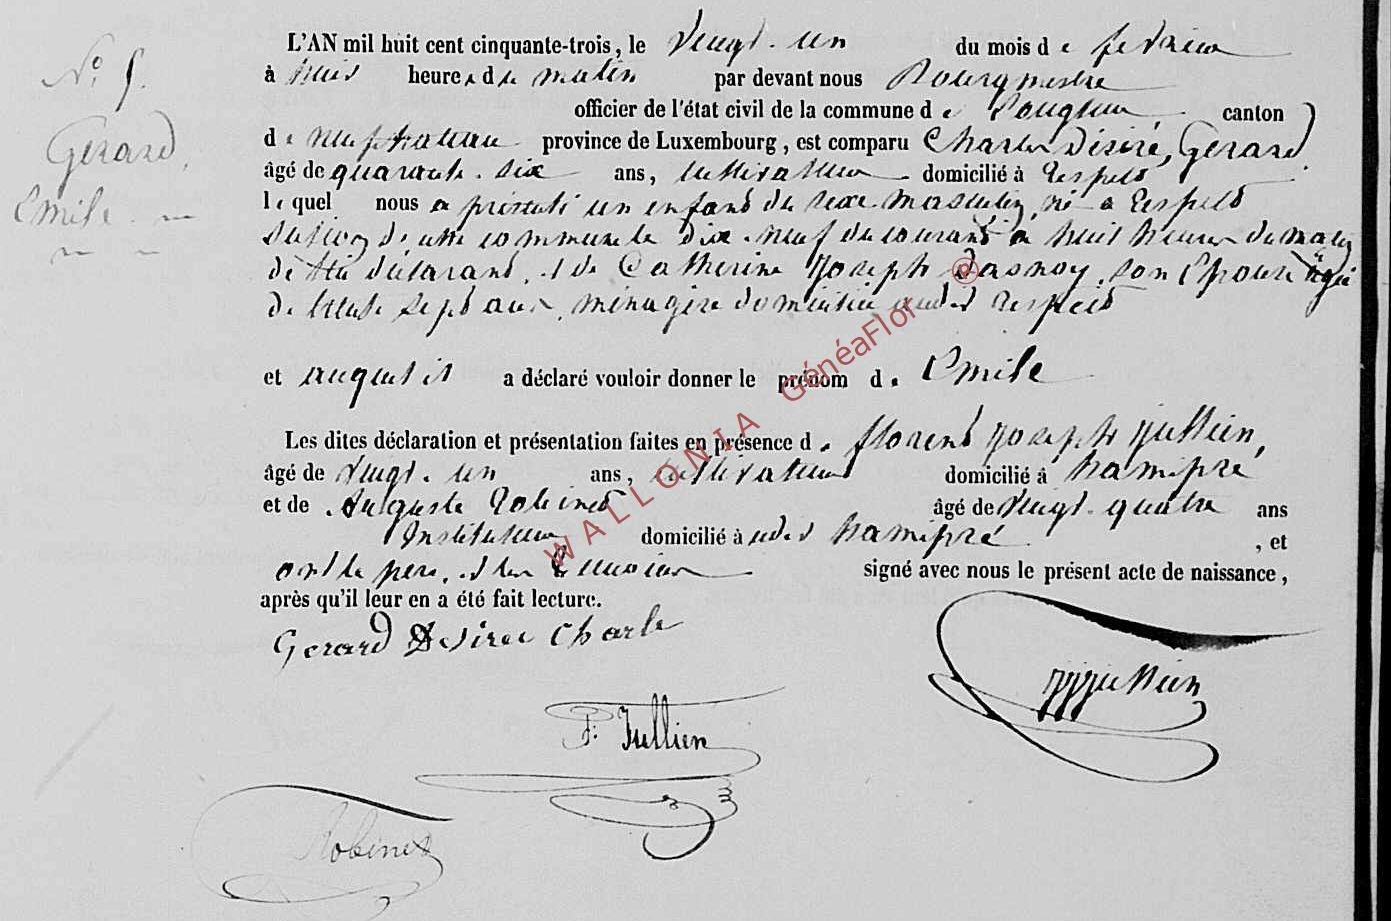 N.º 5.
Gerard,
Emile
L'AN mil huit cent cinquante-trois, le vingt-un du mois de fevrier
à huit heures du matin par devant nous Bourgmestre
officier de l'état civil de la commune de Longlier canton
de neufchateau province de Luxembourg, est comparu Charles Désiré, Gerard,
âgé de quarante-six ans, cultivateur domicilié à Respelt
lequel nous a présenté un enfant du sexe masculin, né à Respelt
section de cette commune le dix-neuf du courant à huit heures du matin
de lui déclarant, et de Catherine Joseph Dasnoy, son épouse âgée
de trente sept ans, ménagère domiciliée audit Respelt
et auquel il a déclaré vouloir donner le prénom de Emile
Les dites déclaration et présentation faites en présence de florent Joseph Jullien,
âgé de vingt-un ans, cultivateur domicilié à hamipré
et de Auguste Robinet âgé de vingt-quatre ans
Instituteur domicilié à hamipré , et
ont le père, et les témoins signé avec nous le présent acte de naissance,
après qu'il leur en a été fait lecture.
Gerard Desiree Charle
Jullien
F. Jullien
Robinet
WALLONIA GénéaFlor ®